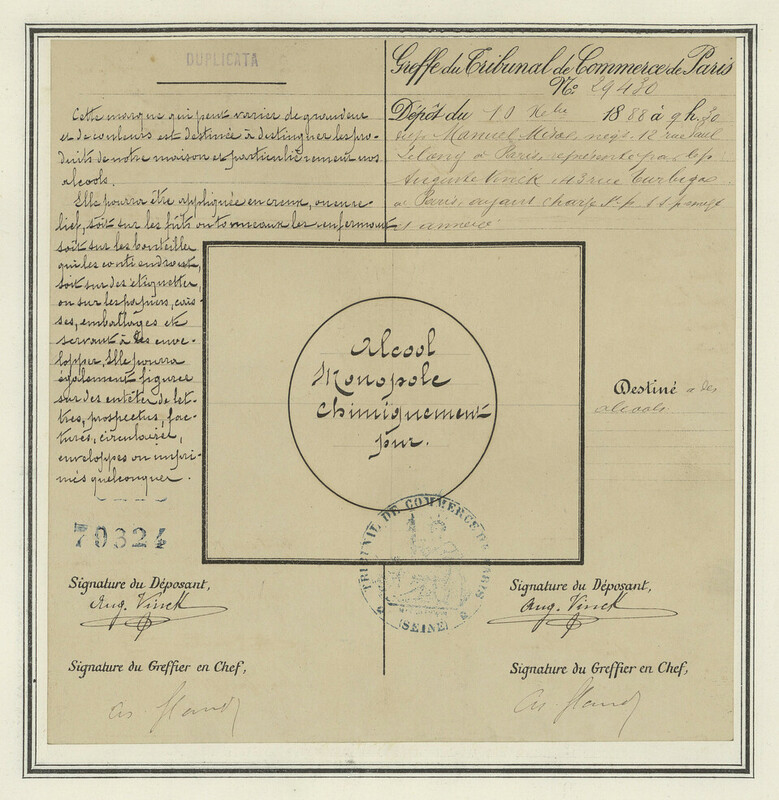 DUPLICATA
Cette marque qui peut varier de grandeur
et de couleurs est destinée à distinguer les pro-
duits de notre maison et particulièrement nos
alcools.
Elle pourra être appliquée en creux, ou en re-
lief, soit sur les fûts ou tonneaux les renfermant
soit sur les bouteilles
qui les contiendront,
soit sur des étiquettes,
ou sur les papiers, cais-
ses, emballages et
servant à les enve-
lopper. Elle pourra
également figurer
sur des entête de let-
tres, prospectus, fac-
tures, circulaires,
enveloppes ou impri-
més quelconques.
70324
Signature du Déposant,
Aug. Vinck
Signature du Greffier en Chef,
Greffe du Tribunal de Commerce de Paris
No 29430
Dépôt du 10 Xbre 1888 à 9 h. 30
Manuel négt. 12 rue Paul
à Paris, représenté par
Auguste Vinck 43 rue Turbigo
à Paris, ayant charge
annexé
Alcool
Monopole
Chimiquement
pur.
Destiné à des
alcools
TRIBUNAL DE COMMERCE DE PARIS
(SEINE)
Signature du Déposant,
Aug. Vinck
Signature du Greffier en Chef,